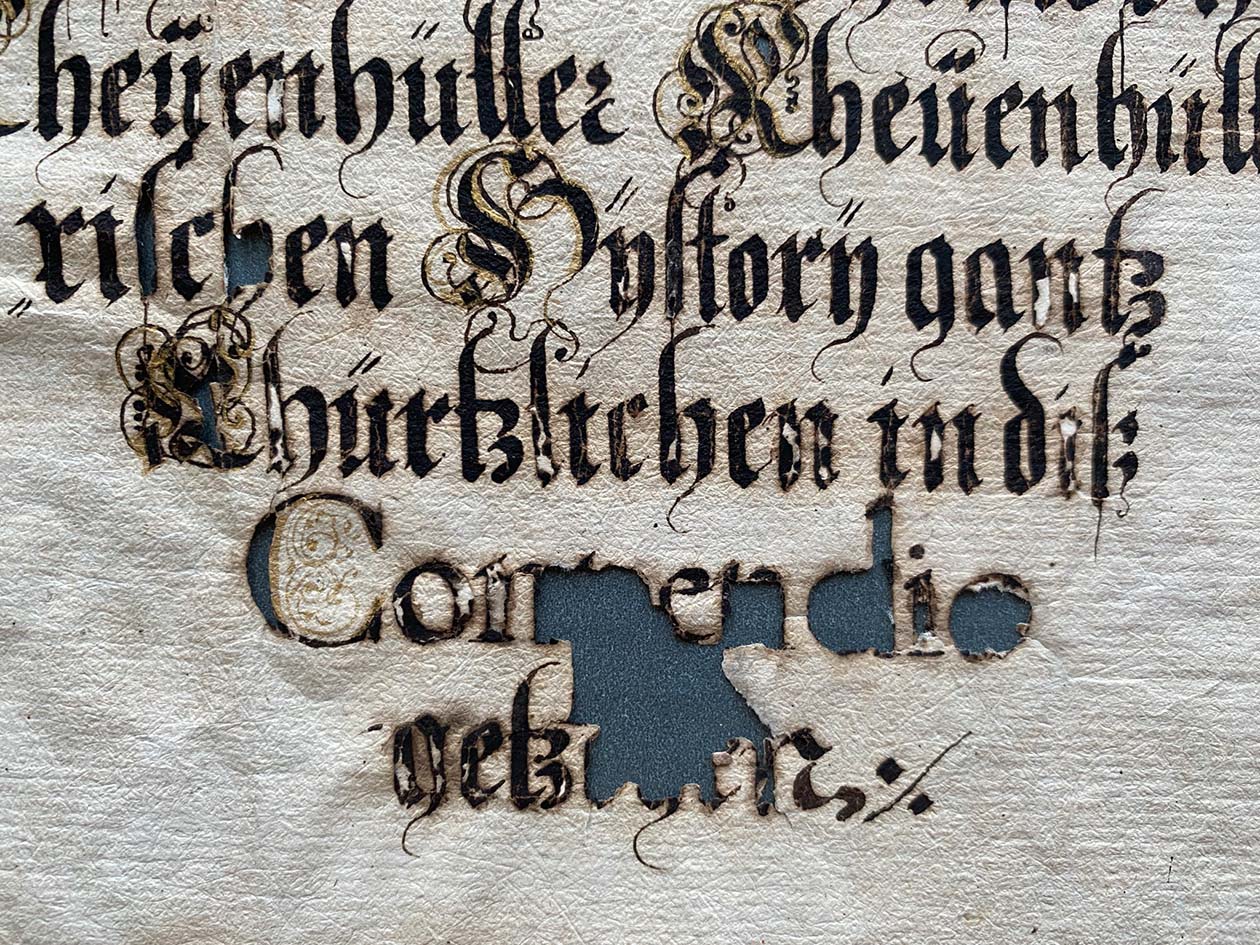 Kheüenhüller Kheüenhüll
rischen Hÿstorÿ gantz
Khürtzlichen in diß
Compendio